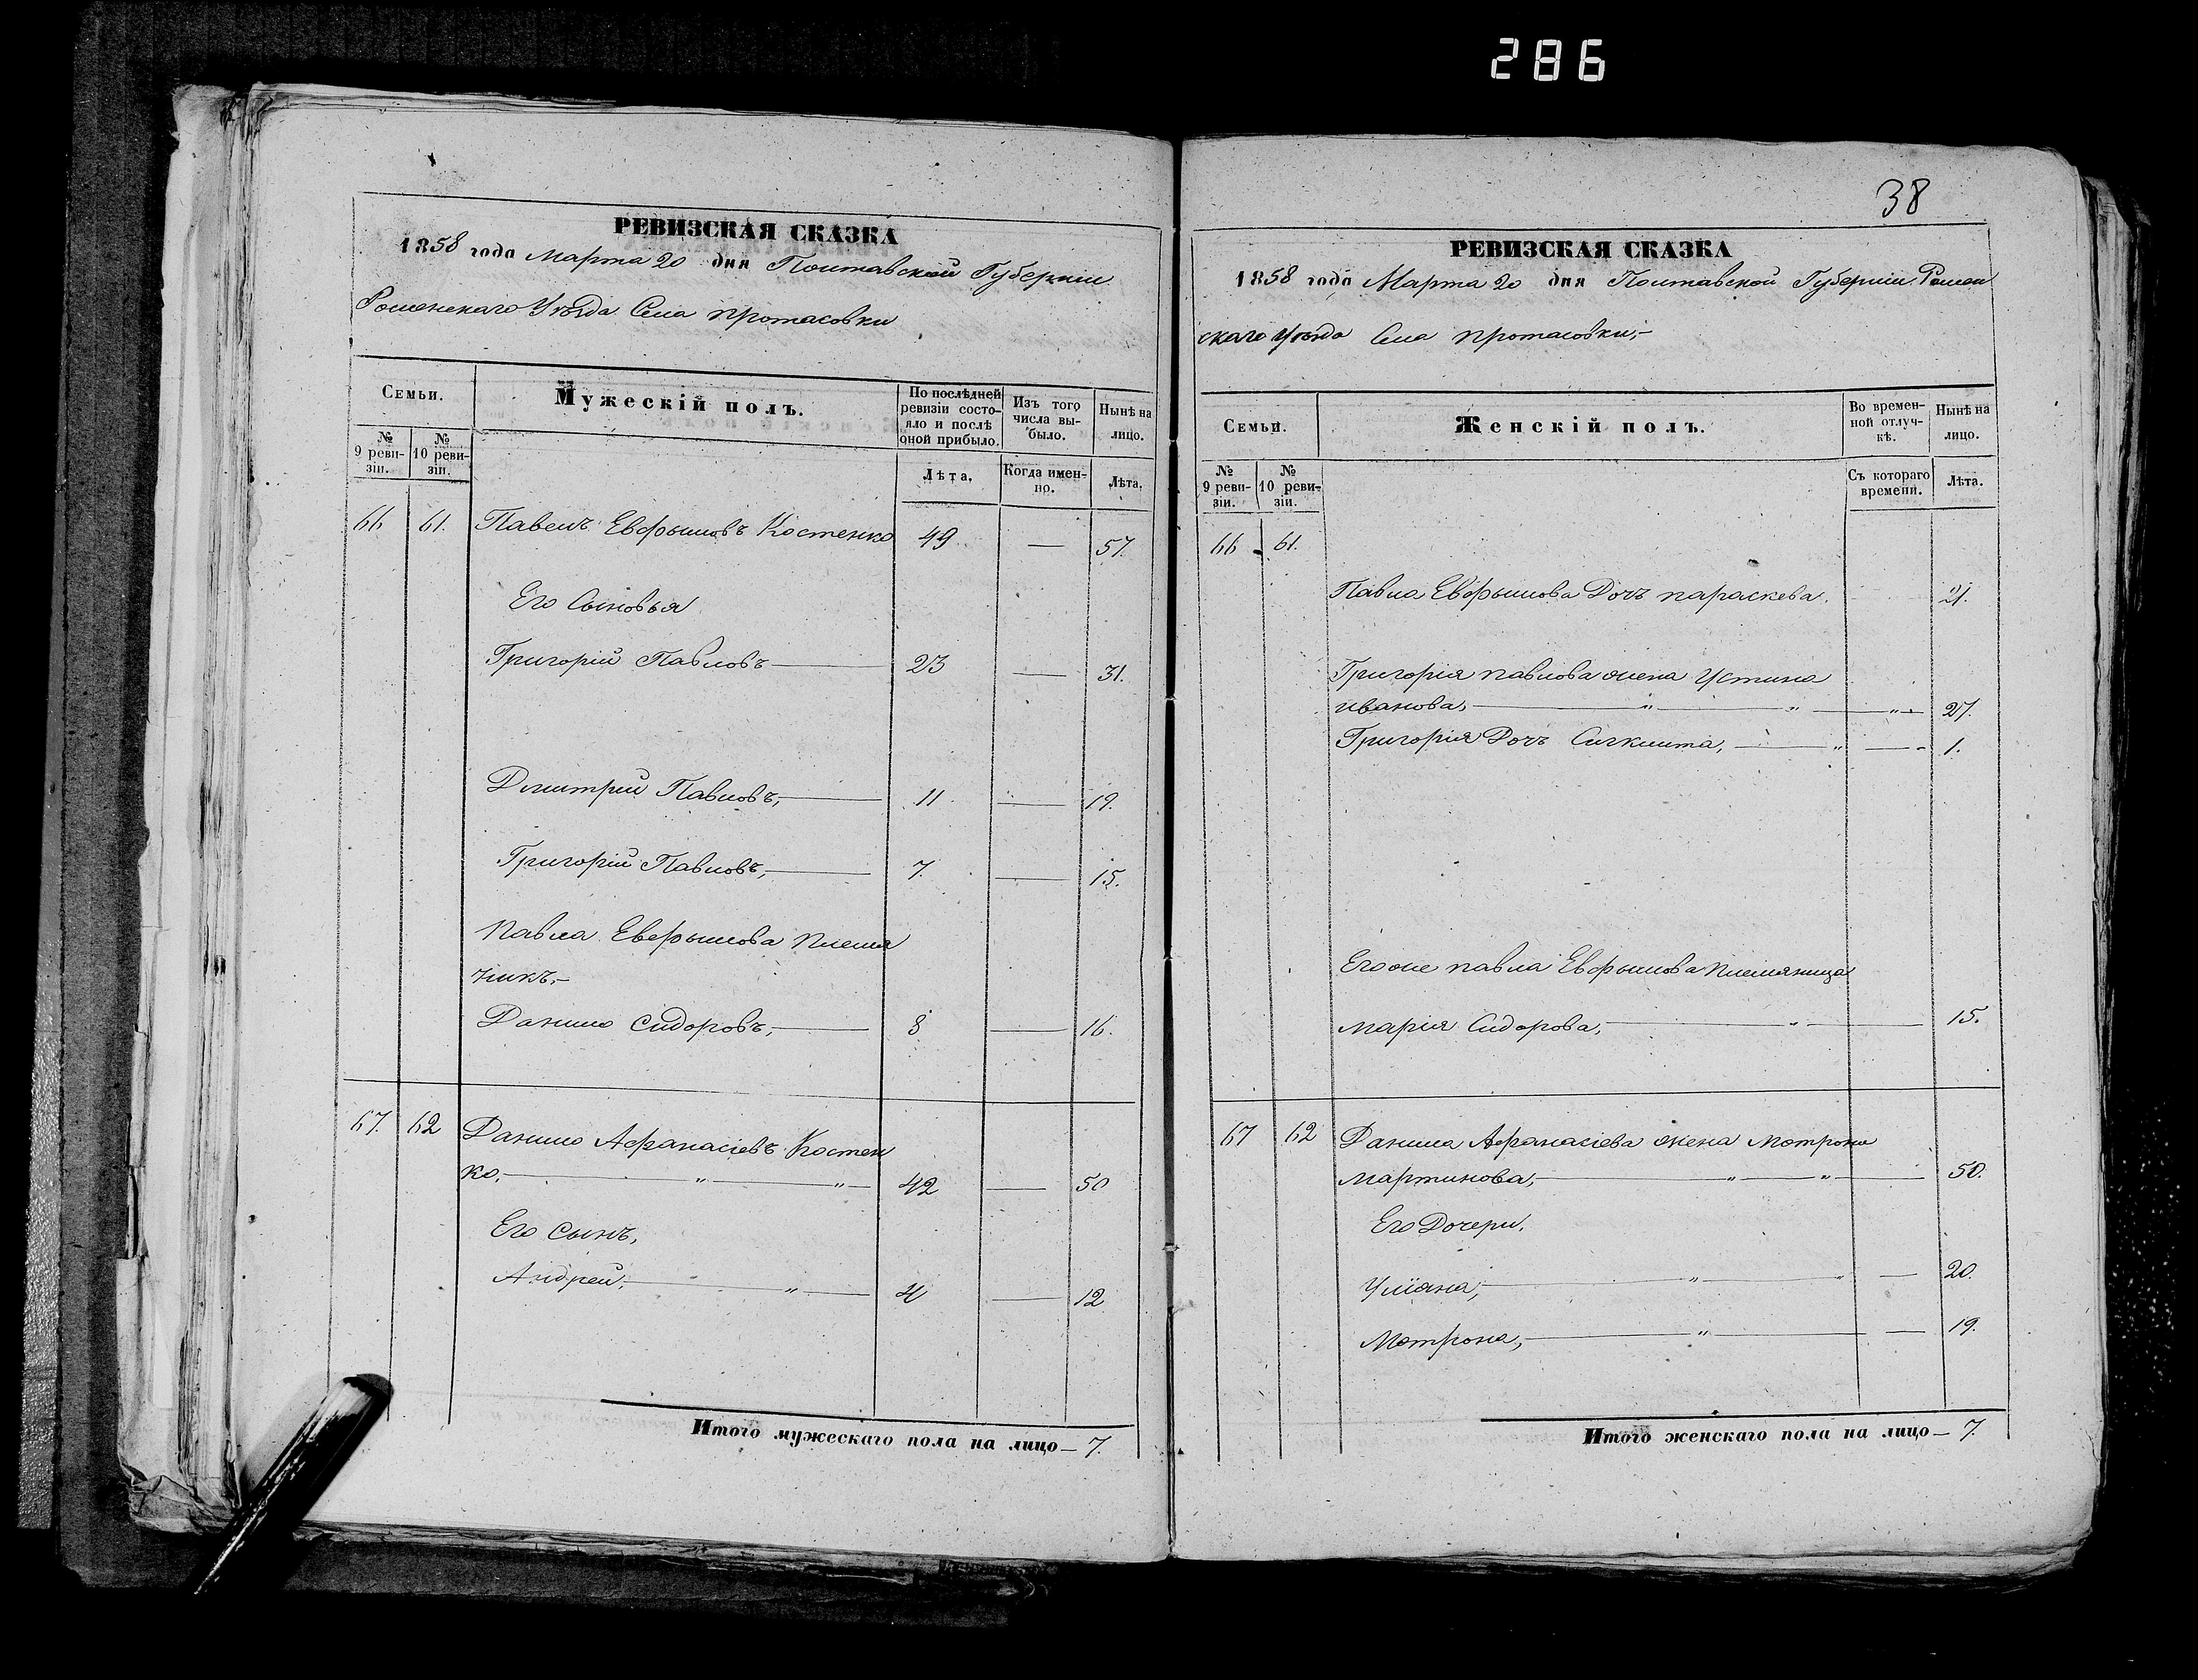 286
РЕВИЗСКАЯ СКАЗКА
1858 года Марта 20 дня Полтавской Губернии
Роменскаго Уѣзда Села протасовки
Семьи.
Мужескій полъ.
По послѣдней ревизіи состояло и послѣ оной прибыло.
Изъ того числа выбыло.
Нынѣ на лицо.
№ 9 ревизіи.
№ 10 ревизіи.
Лѣта.
Когда именно.
Лѣта.
66 61. Павелъ Евфимовъ Костенко 49 — 57.
Его Сыновья
Григорій Павловъ — 23 — 31.
Дмитрий Павловъ, — 11 — 19.
Григорій Павловъ, — 7. — 15.
Павла Евфимова племя
никъ,-
Данило Сидоровъ, — 8 — 16.
67. 62 Данило Афанасіевъ Костен
ко, — " — " — 42 — 50
Его Сынъ,
Андрей, — " — 4 — 12
Итого мужескаго пола на лицо — 7.
38
РЕВИЗСКАЯ СКАЗКА
1858 года Марта 20 дня Полтавской Губернии Ромен
скаго Уѣзда Села протасовки,-
Семьи.
Женскій полъ.
Во временной отлучкѣ.
Нынѣ на лицо.
№ 9 ревизіи.
№ 10 ревизіи.
Съ котораго времени.
Лѣта.
66 61.
Павла Евфимова Дочь параскева. 21.
Григорія павлова жена Устина
иванова, — " — " — " — 27.
Григорія Дочь — " — 1.
Егоже павла Евфимова племяница
марія Сидорова, — " — 15.
67 62 Данила Афанасіева жена мотрона
мартинова, — " — " — 50.
Его Дочери,
Уліана, — " — " — 20.
Мотрона, — " — 19.
Итого женскаго пола на лицо — 7.